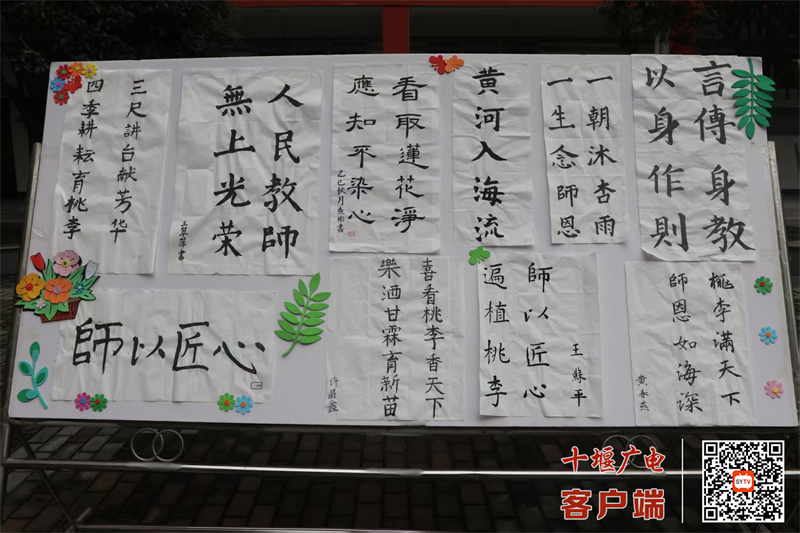 三尺讲台献芳华
四季耕耘育桃李
人民教師
無上光荣
看取蓮花淨
應知不染心
黄河入海流
一朝沐杏雨
一生念師恩
言傳身教
以身作則
師以匠心
喜看桃李香天下
樂洒甘霖育新苗
許昌鑫
師以匠心
遍植桃李
王蘇平
桃李滿天下
師恩如海深
十堰广电
客户端
SYTV